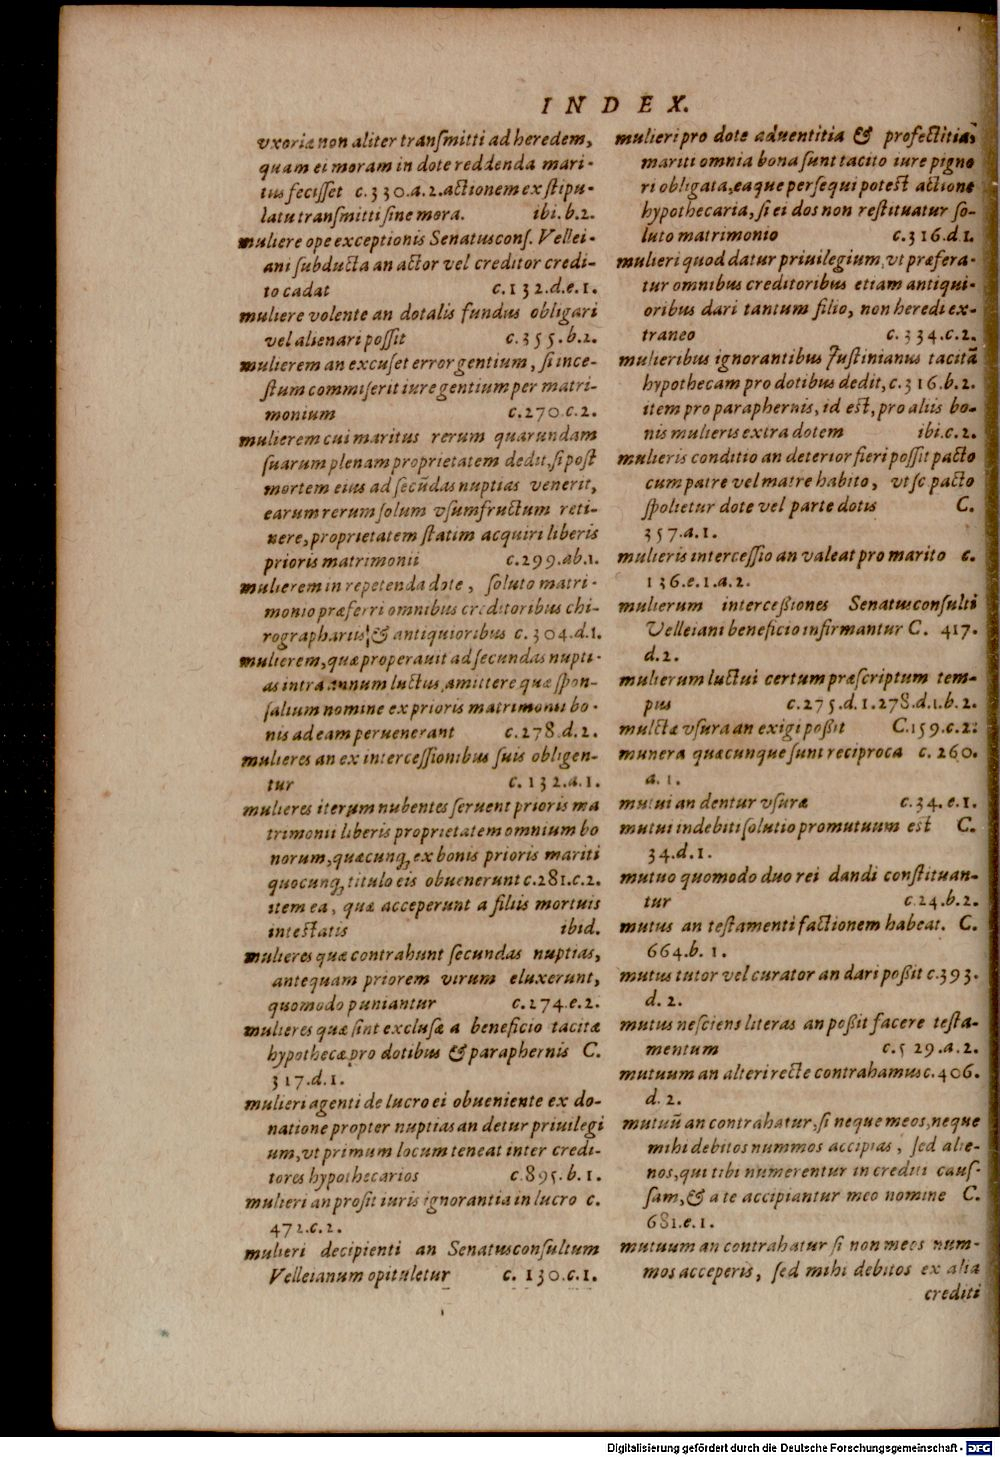 INDEX.
vxoriæ non aliter transmitti ad heredem,
quam ei moram in dote reddenda mari-
tus fecisset c.330.a.2. actionem ex stipu-
latu transmitti sine mora. ibi.b.2.
muliere ope exceptionis Senatuscons. Vellei-
ani subducta an actor vel creditor credi-
to cadat c.132.d.e.1.
muliere volente an dotalis fundus obligari
vel alienari possit c.355.b.2.
mulierem an excuset error gentium, si ince-
stum commiserit iure gentium per matri-
monium c.270.c.2.
mulierem cui maritus rerum quarundam
suarum plenam proprietatem dedit, si post
mortem eius ad secũdas nuptias venerit,
earum rerum solum vsumfructum reti-
nere, proprietatem statim acquiri liberis
prioris matrimonii c.299.ab.1.
mulierem in repetenda dote, soluto matri-
monio præferri omnibus creditoribus chi-
rographariis, & antiquioribus c.304.d.1.
mulierem, quæ properauit ad secundas nupti-
as intra annum luctus, amittere quæ spon-
salium nomine ex prioris matrimonii bo-
nis ad eam peruenerant c.278.d.2.
mulieres an ex intercessionibus suis obligen-
tur c.132.a.1.
mulieres iterum nubentes seruent prioris ma
trimonii liberis proprietatem omnium bo
norum, quæcunq; ex bonis prioris mariti
quocunq; titulo eis obuenerunt c.281.c.2.
item ea, quæ acceperunt a filiis mortuis
intestatis ibid.
mulieres quæ contrahunt secundas nuptias,
antequam priorem virum eluxerunt,
quomodo puniantur c.274.e.2.
mulieres quæ sint exclusæ a beneficio tacitæ
hypothecæ pro dotibus & paraphernis C.
317.d.1.
mulieri agenti de lucro ei obueniente ex do-
natione propter nuptias an detur priuilegi
um, vt primum locum teneat inter credi-
tores hypothecarios c.895.b.1.
mulieri an prosit iuris ignorantia in lucro c.
472.c.2.
mulieri decipienti an Senatusconsultum
Velleianum opituletur c.130.c.1.
mulieri pro dote aduentitia & profectitia,
mariti omnia bona sunt tacito iure pigno
ri obligata, eaque persequi potest actione
hypothecaria, si ei dos non restituatur so-
luto matrimonio c.316.d.1.
mulieri quod datur priuilegium, vt præfera-
tur omnibus creditoribus etiam antiqui-
oribus dari tantum filio, non heredi ex-
traneo c.334.c.2.
mulieribus ignorantibus Iustinianus tacitã
hypothecam pro dotibus dedit, c.316.b.2.
item pro paraphernis, id est, pro aliis bo-
nis mulieris extra dotem ibi.c.2.
mulieris conditio an deterior fieri possit pacto
cum patre vel matre habito, vt sc pacto
spolietur dote vel parte dotis C.
357.a.1.
mulieris intercessio an valeat pro marito c.
136.e.1.a.2.
mulierum interceßiones Senatusconsulti
Velleiani beneficio infirmantur C. 417.
d.2.
mulierum luctui certum præscriptum tem-
pus c.275.d.1.278.d.1.b.2.
mulctæ vsura an exigi poßit C.159.c.2.
munera quæcunque sunt reciproca c.260.
a.1.
mutui an dentur vsuræ c.34.e.1.
mutui indebiti solutio promutuum est C.
34.d.1.
mutuo quomodo duo rei dandi constituan-
tur c.24.b.2.
mutus an testamenti factionem habeat. C.
664.b.1.
mutus tutor vel curator an dari poßit c.393.
d.2.
mutus nesciens literas an poßit facere testa-
mentum c.529.a.2.
mutuum an alteri recte contrahamus c.406.
d.2.
mutuũ an contrahatur, si neque meos, neque
mihi debitos nummos accipias, sed alie-
nos, qui tibi numerentur in crediti caus-
sam, & a te accipiantur meo nomine C.
681.e.1.
mutuum an contrahatur si non meos num-
mos acceperis, sed mihi debitos ex alia
crediti
Digitalisierung gefördert durch die Deutsche Forschungsgemeinschaft - DFG